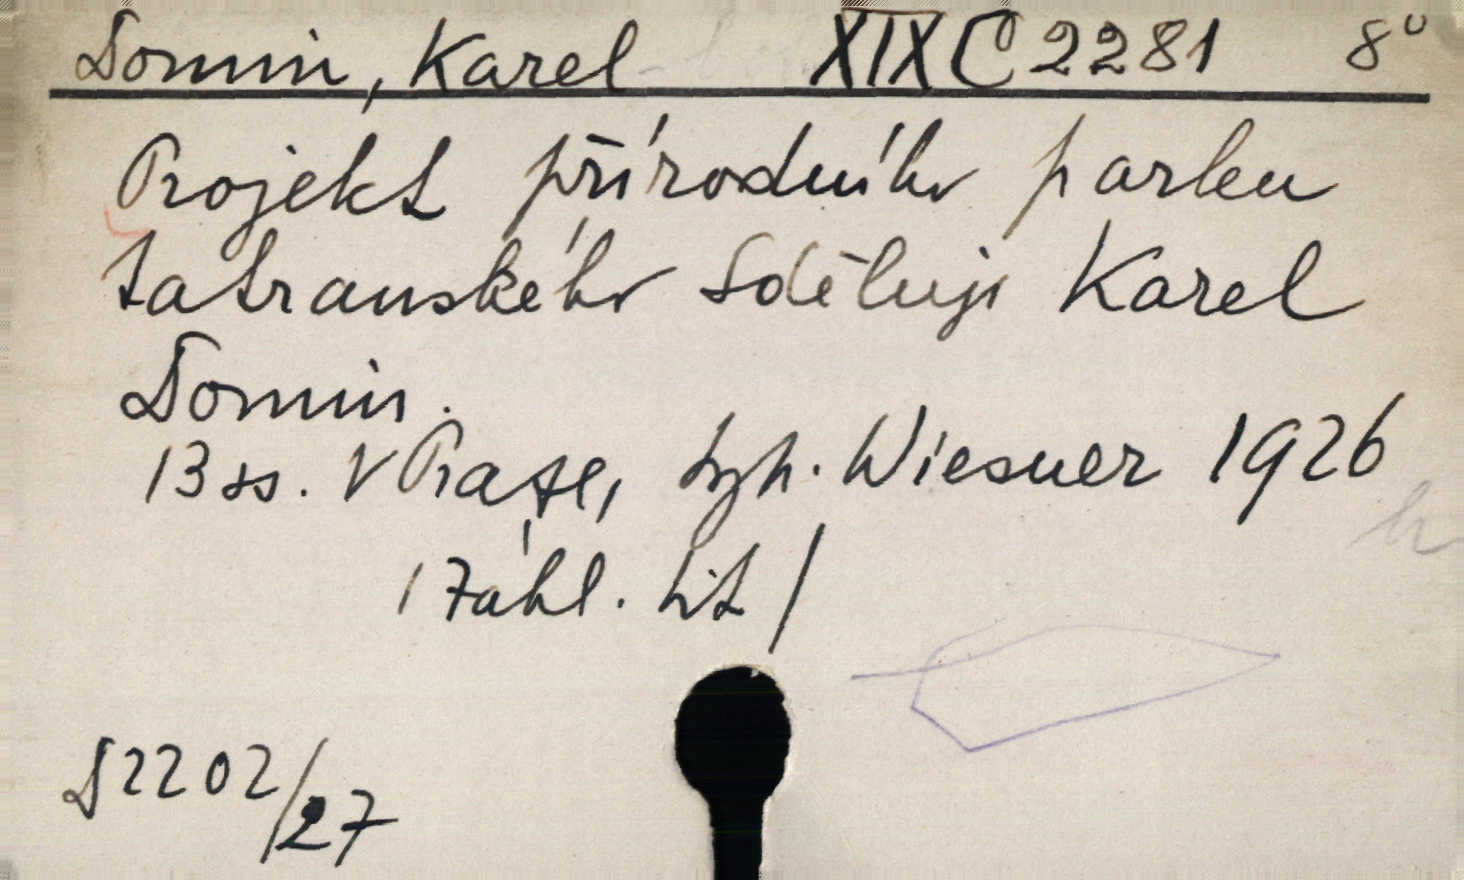 Domin, Karel XIX C 2281 8°
Projekt přírodního parku
tatranského sděluje Karel
Domin.
13 ss. V Praze, typ. Wiesner 1926
/ záhl. tit /
D 2202/27